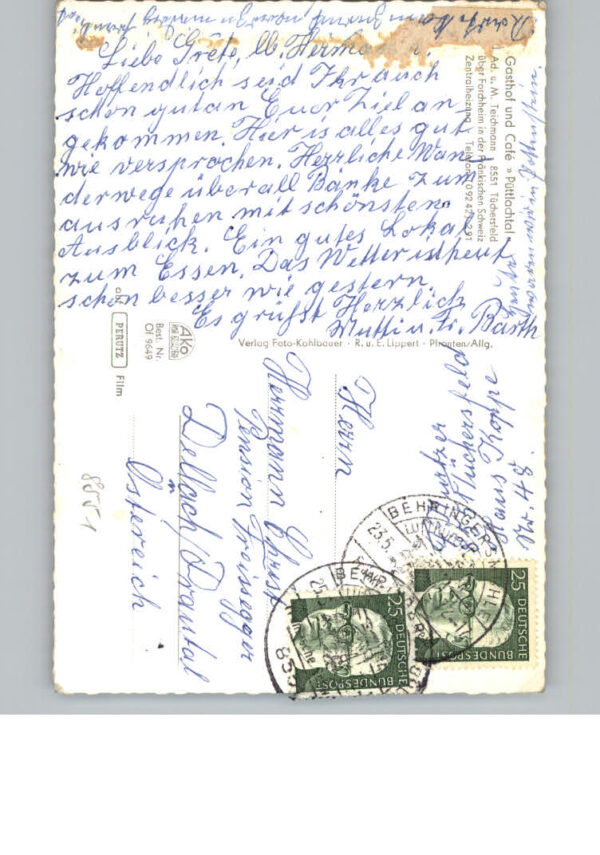 Liebe Grete, lb. Hermann u.
Hoffendlich seid Ihr auch
schön gut an Euer Ziel an,
gekommen. Hier is alles gut
wie versprochen. Herrliche Wan
derwege überall Bänke zum
ausruhen mit schönsten
Ausblick. Ein gutes Lokal
zum Essen. Das Wetter ist heut
schön besser wie gestern.
Es grüßt Herzlich
Mutti u. Fr. Barth
Gasthof und Café »Püttlachtal«
Ad. u. M. Teichmann 8551 Tüchersfeld
über Forchheim in der Fränkischen Schweiz
Zentralheizung Telefon 0 92 42 / 2 91
Verlag Foto-Kohlbauer · R. u. E. Lippert · Pfronten/Allg.
AKO
Best. Nr.
Of 9649
PERUTZ Film
Tüchersfeld
Haus Koppe
Nr. 48
Herrn
Herrmann Christ
Pension Troissegger
Dellach/Drautal
Östereich
8551
BEHRINGERSMÜHLE
23.5.
25 DEUTSCHE BUNDESPOST
25 DEUTSCHE BUNDESPOST